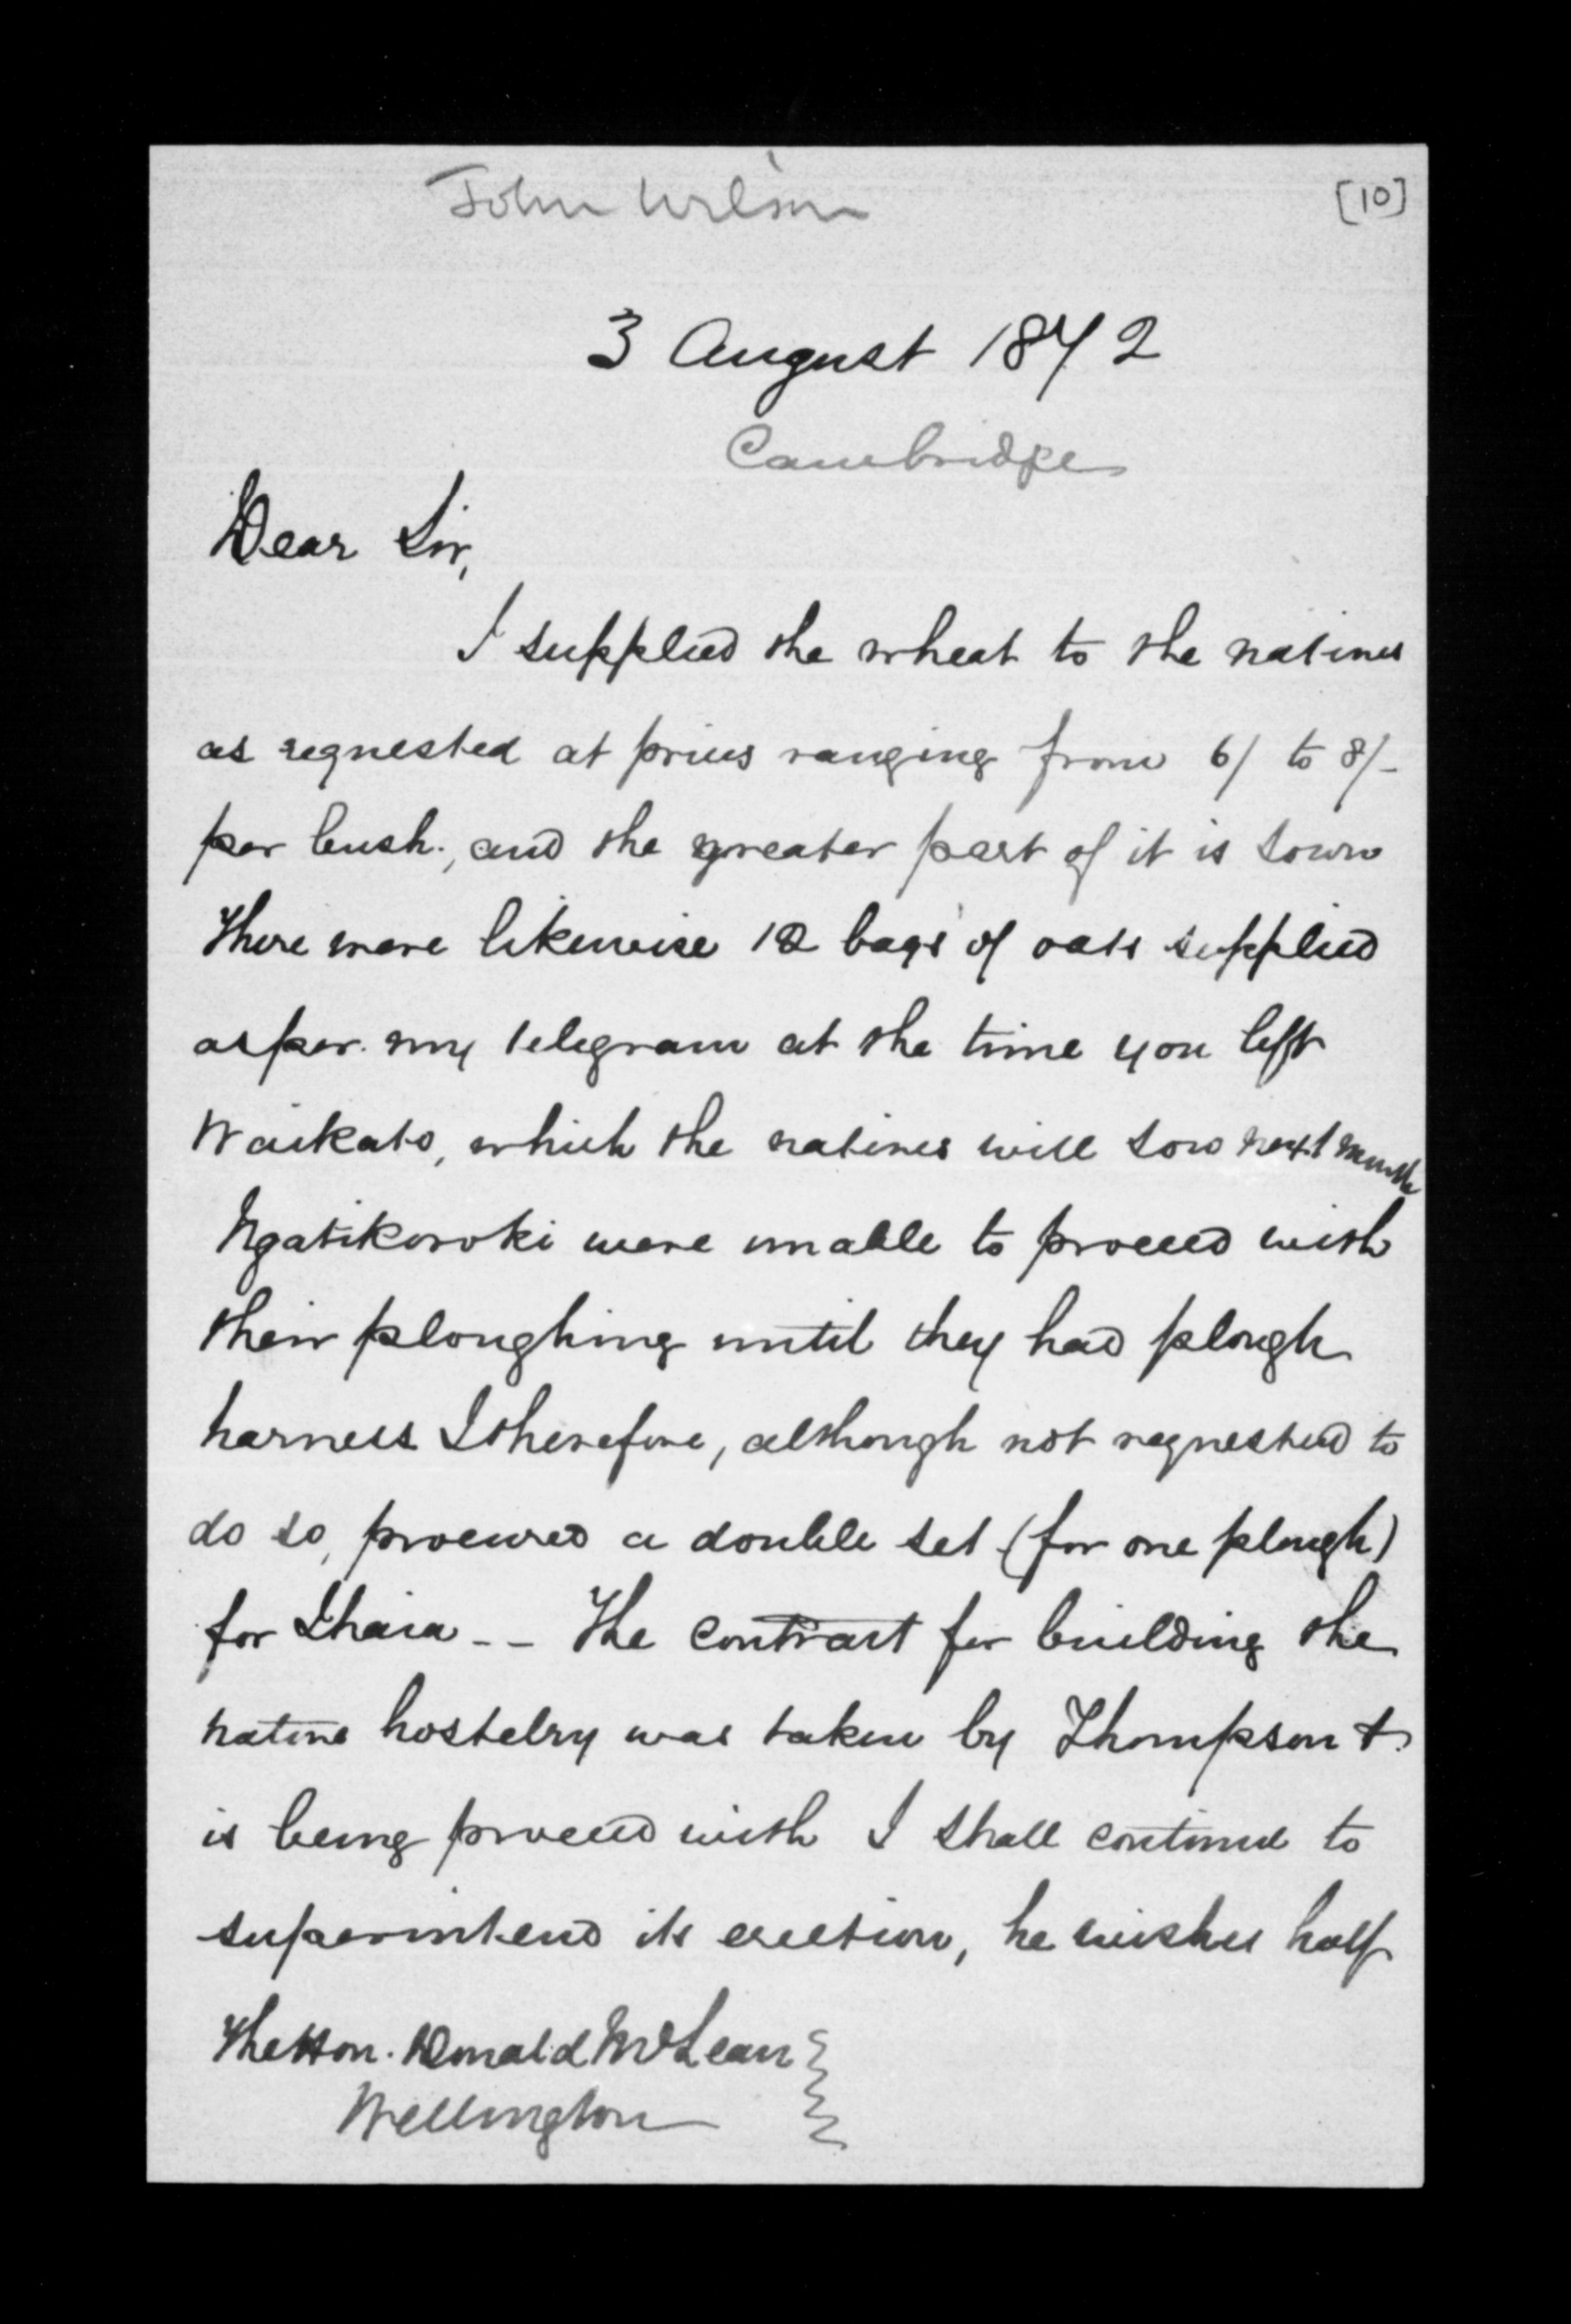 John Wilson
[10]
3 August 1872
Cambridge
Dear Sir,
I supplied the wheat to the natives
as requested at prices ranging from 6/ to 8/-
per bush., and the greater part of it is sown
There were likewise 12 bags of oats supplied
as per. my telegram at the time you left
Waikato, which the natives will sow next month
Ngatikoroki were unable to proceed with
their ploughing until they had plough
harness I therefore, although not requested to
do so, procured a double set (for one plough)
for Ihaia -- The contract for building the
native hostelry was taken by Thompson &
is being proceed with I shall continue to
superintend its erection, he wishes half
The Hon. Donald McLean
Wellington